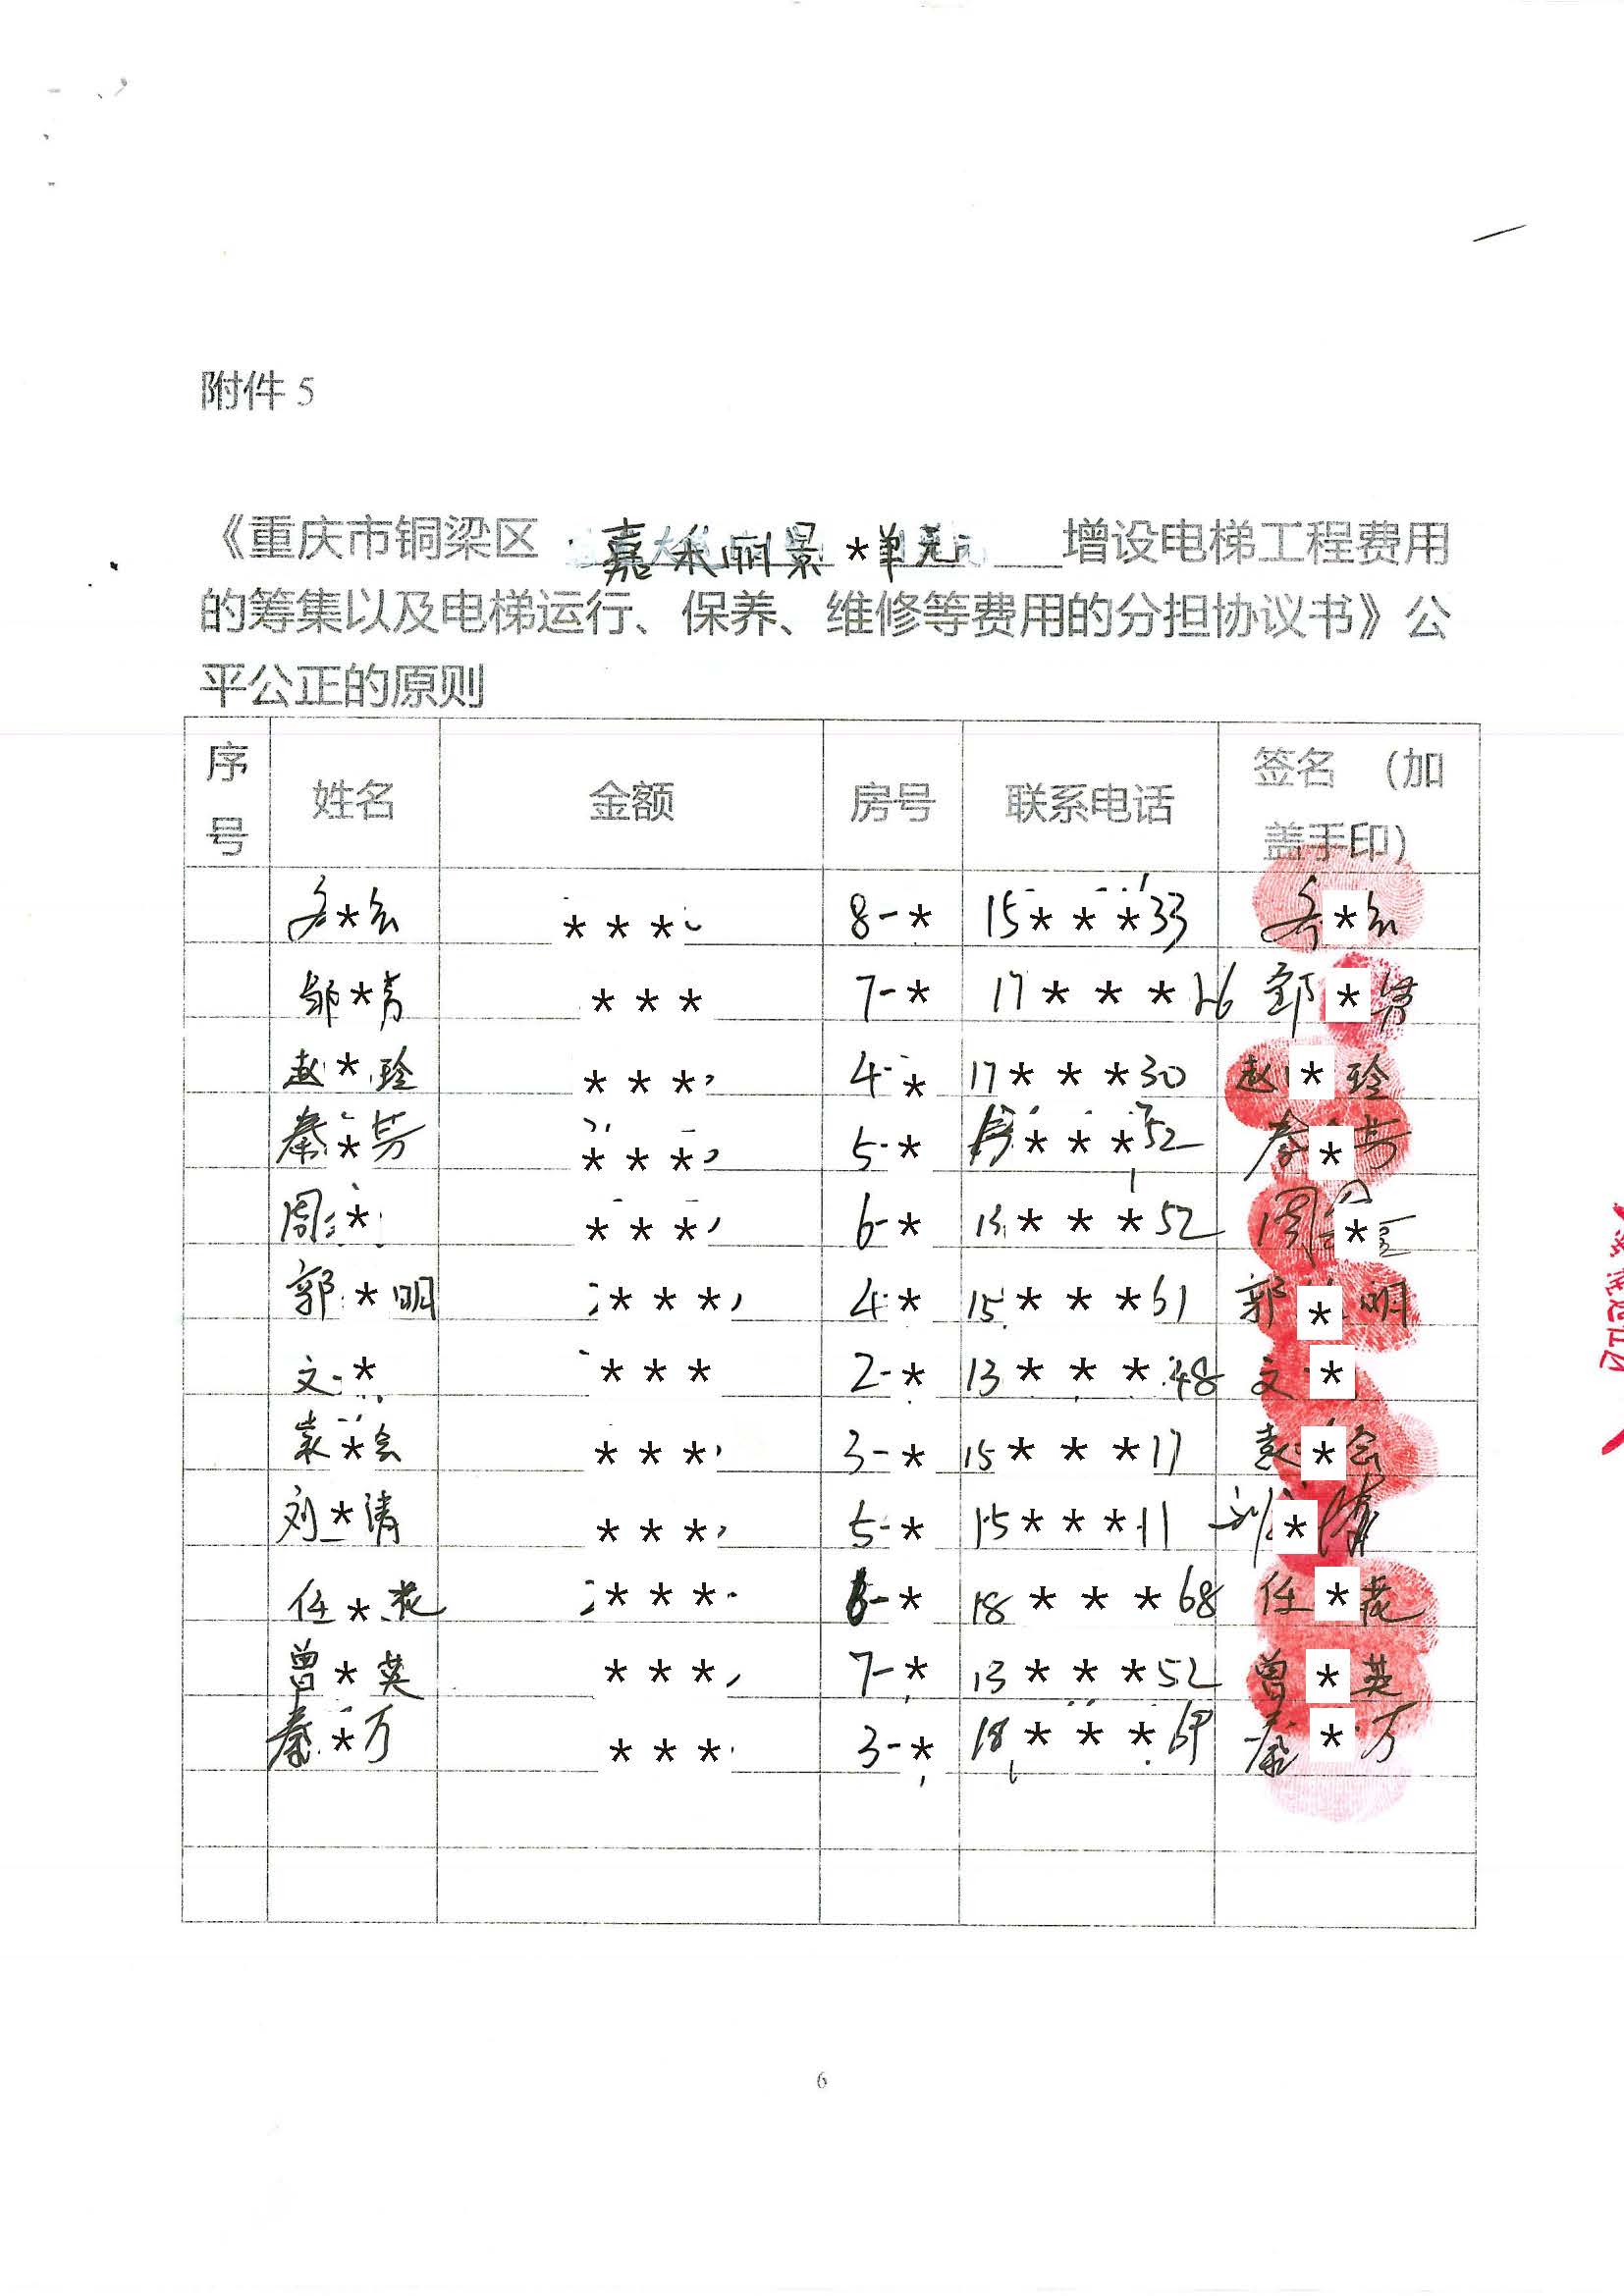 附件 5
《重庆市铜梁区 嘉禾丽景*单元 增设电梯工程费用
的筹集以及电梯运行、保养、维修等费用的分担协议书》公
平公正的原则
序号 姓名 金额 房号 联系电话 签名 （加盖手印）
*会 *** 8-* 15***33 *会
邹*芳 *** 7-* 17***26 邹*芳
赵*玲 *** 4-* 17***30 赵*玲
秦*芳 *** 5-* ***52 秦*芳
周* *** 6-* 13***52 周*
郭*明 *** 4-* 15***51 郭*明
文* *** 2-* 13***48 文*
袁*会 *** 3-* 15***17 袁*会
刘*清 *** 5-* 15***11 刘*清
任*花 *** 6-* 18***68 任*花
曾*英 *** 7-* 13***52 曾*英
秦*万 *** 3-* 18***69 秦*万
6